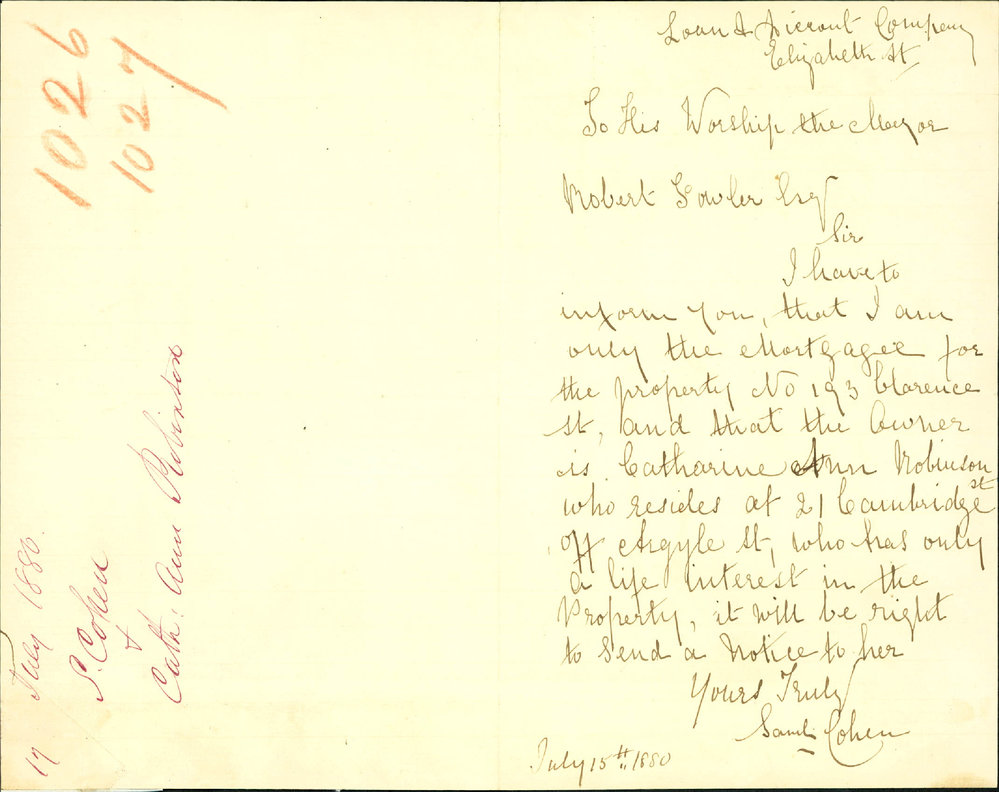 1026
1027
17 July 1880.
S. Cohen
+
Cath: Ann Robinson
Loan & Discount Company
Elizabeth St
To His Worship the Mayor
Robert Fowler Esqr
Sir
I have to
inform you, that I am
only the Mortgagee for
the property No 193 Clarence
st, and that the Owner
is Catharine Ann Robinson
who resides at 21 Cambridge st
off Argyle St, who has only
a life interest in the
Property, it will be right
to send a Notice to her
Yours Truly
Saml Cohen
July 15th 1880